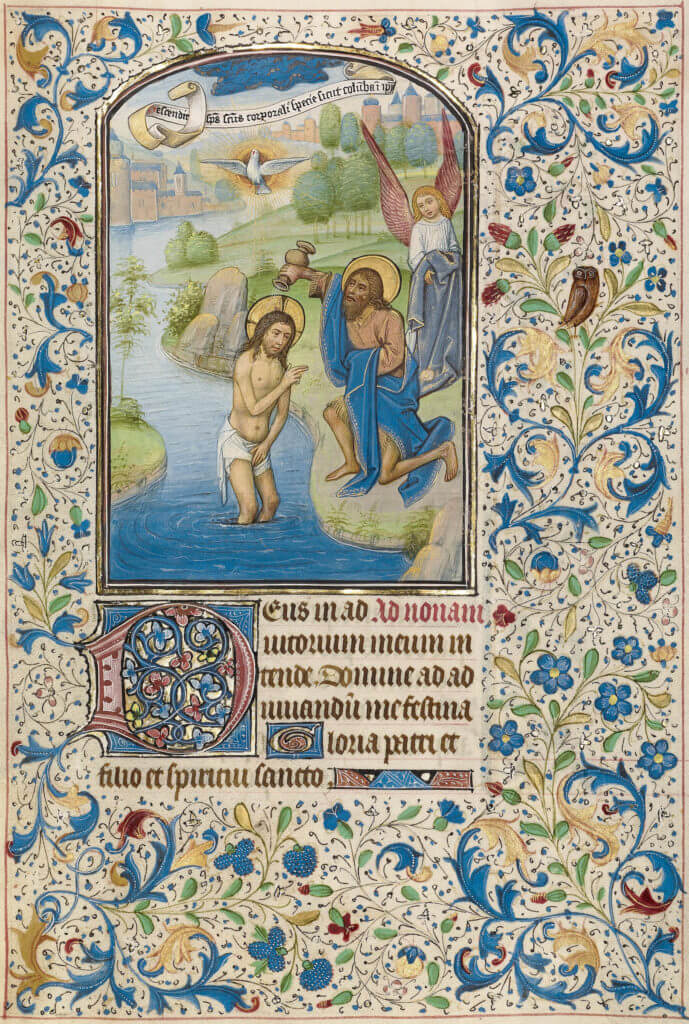 escendit sps scūs corporali specie sicut colūba ī ipm
Deus in ad Ad nonam
iutorium meum in
tende. Domine ad ad
iuuandū me festina
Gloria patri et
filio et spiritui sancto